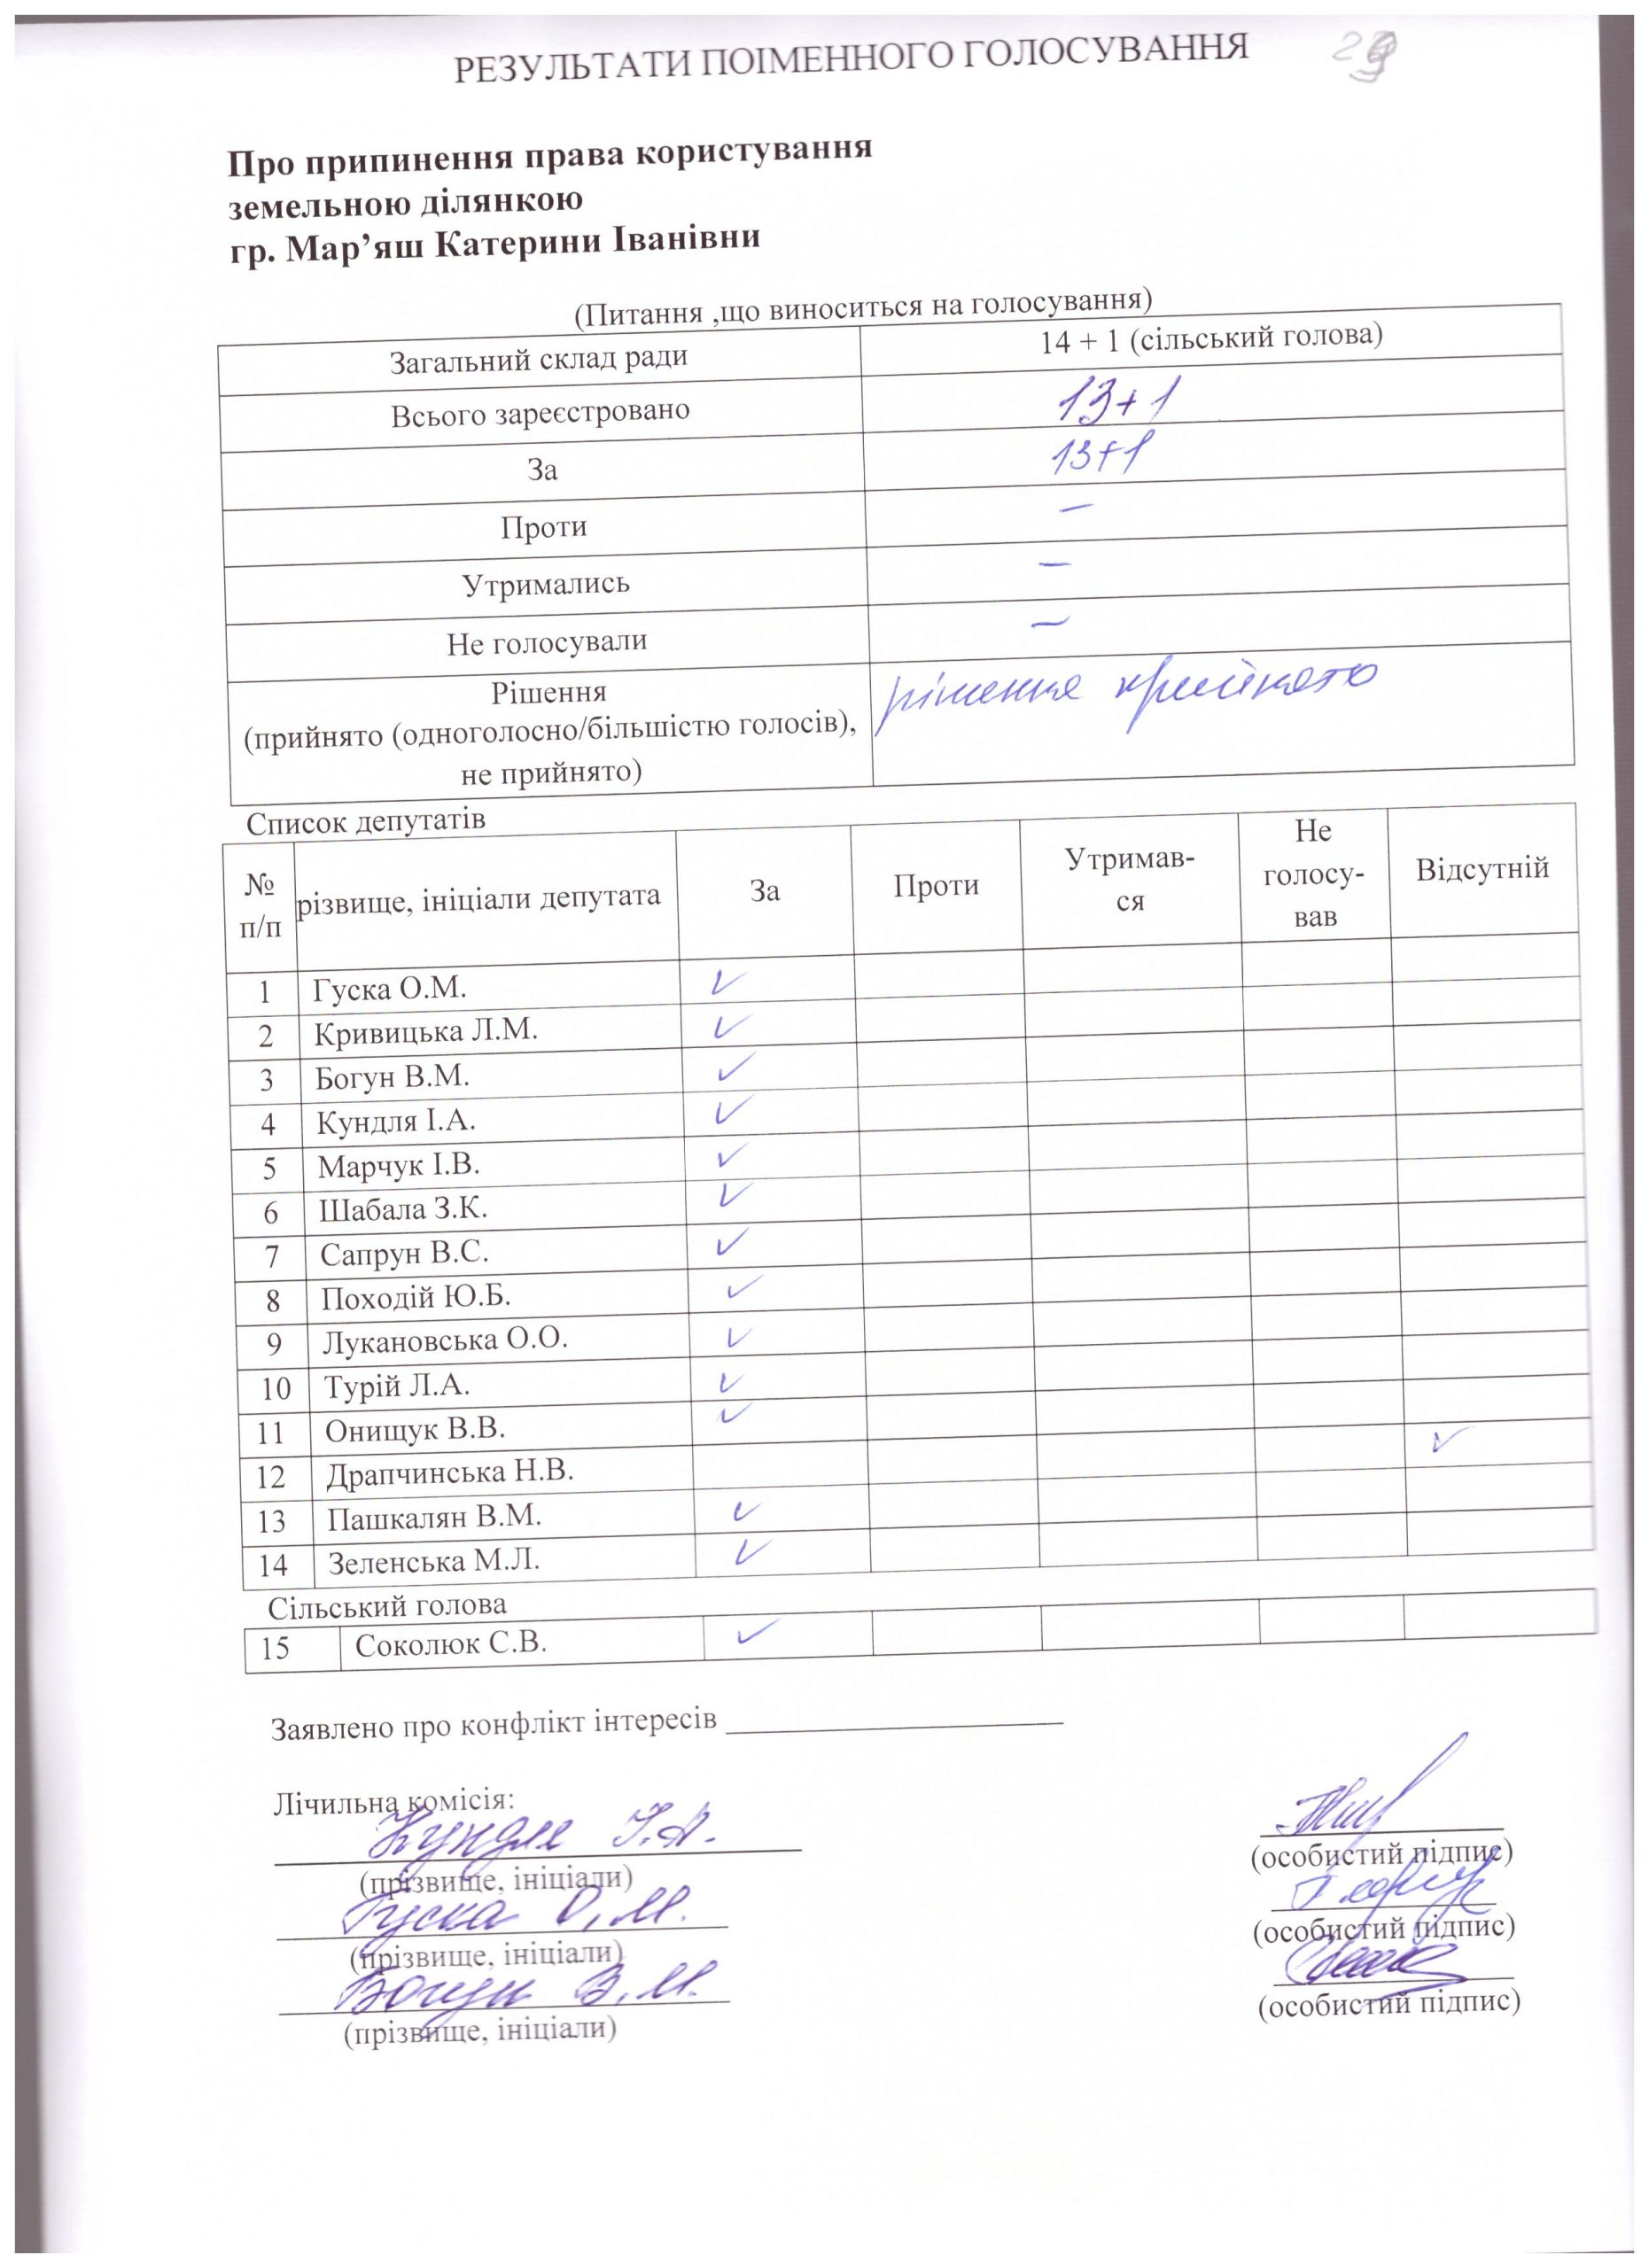 РЕЗУЛЬТАТИ ПОІМЕННОГО ГОЛОСУВАННЯ
Про припинення права користування
земельною ділянкою
гр. Мар’яш Катерини Іванівни
(Питання ,що виноситься на голосування)
Загальний склад ради 14 + 1 (сільський голова)
Всього зареєстровано 13+1
За 13+1
Проти –
Утримались –
Не голосували –
Рішення
(прийнято (одноголосно/більшістю голосів),
не прийнято) рішення прийнято
Список депутатів
№ п/п різвище, ініціали депутата За Проти Утримав-ся Не голосу-вав Відсутній
1 Гуска О.М. ✓
2 Кривицька Л.М. ✓
3 Богун В.М. ✓
4 Кундля І.А. ✓
5 Марчук І.В. ✓
6 Шабала З.К. ✓
7 Сапрун В.С. ✓
8 Походій Ю.Б. ✓
9 Лукановська О.О. ✓
10 Турій Л.А. ✓
11 Онищук В.В. ✓
12 Драпчинська Н.В. ✓
13 Пашкалян В.М. ✓
14 Зеленська М.Л. ✓
Сільський голова
15 Соколюк С.В. ✓
Заявлено про конфлікт інтересів
Лічильна комісія:
Кундля І.А.
(прізвище, ініціали) (особистий підпис)
Гуска О.М.
(прізвище, ініціали) (особистий підпис)
Богун В.М.
(прізвище, ініціали) (особистий підпис)